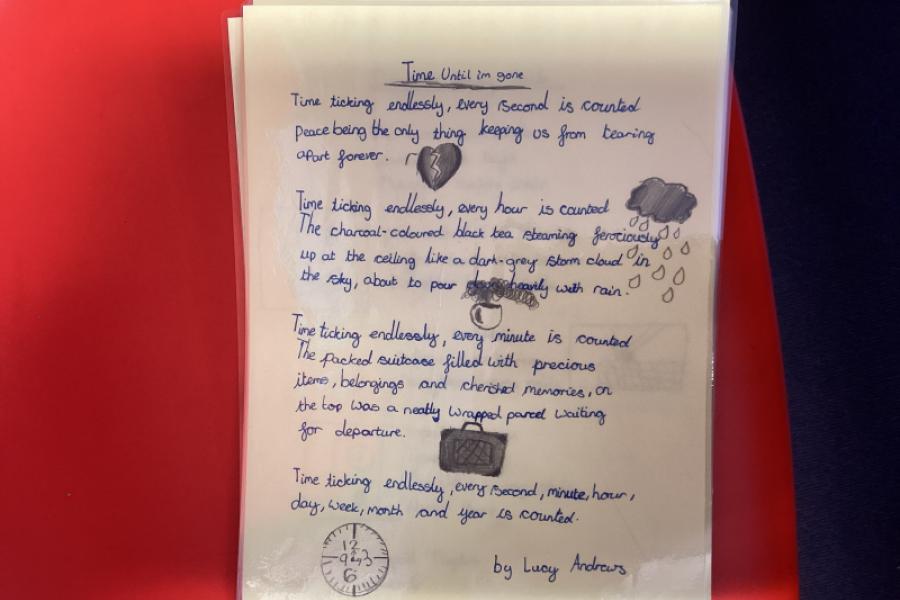 Time Until im gone
Time ticking endlessly, every second is counted
peace being the only thing keeping us from tearing
apart forever.
Time ticking endlessly, every hour is counted
The charcoal-coloured black tea steaming ferociously
up at the ceiling like a dark-grey storm cloud in
the sky, about to pour down heavily with rain.
Time ticking endlessly, every minute is counted
The packed suitcase filled with precious
items, belongings and cherished memories, on
the top was a neatly wrapped parcel waiting
for departure.
Time ticking endlessly, every second, minute, hour,
day, week, month and year is counted.
12
9 3
6
by Lucy Andrews